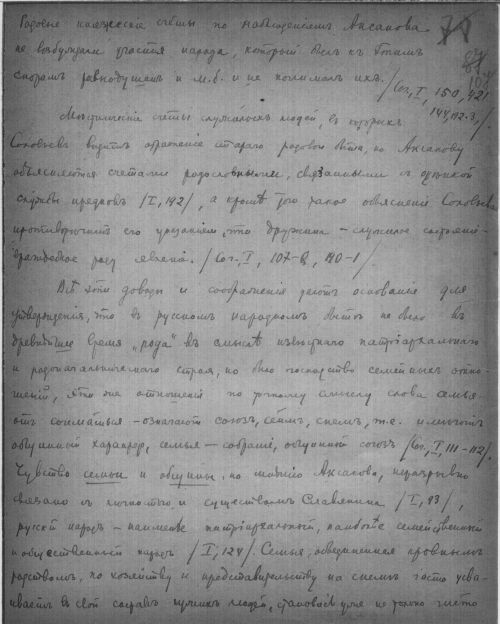 Родовые княжеские счеты по наблюдениям Аксакова
не возбуждали участия народа, который был къ этимъ
спорамъ равнодушенъ и м.б. и не понималъ ихъ.
/Соч. I, 150, 421
144, 112-3,/
Местнические счеты служилыхъ людей, въ которыхъ
Соловьевъ видитъ отражение стараго родового быта, по Аксакову
объясняются счетами родословными, связанными съ оценкой
службы предковъ /I, 142/, а кромѣ того такое объяснение Соловьева
противоречитъ его указаниям, что дружина – служилое состояние –
враждебное роду явление. /Соч. I, 107-8, 140-1/
Всѣ эти доводы и соображения даютъ основание для
утверждения, что въ русскомъ народномъ бытѣ не было въ
древнѣйшее время „рода" въ смыслѣ известнаго патриархальнаго
и родоначальническаго строя, но было господство семейныхъ отно-
шений, эти же отношения по точному смыслу слова семья –
отъ сонматься – означаютъ союзъ, сеймъ, снемъ, т.е. имеютъ
общинный характер, семья – собрание, общинный союзъ /Соч. I 111-112/.
Чувство семьи и общины, по мнѣнию Аксакова, неразрывно
связано съ личностью и существомъ Славянина /I, 93/,
русский народъ – наименее патриархальный, наиболѣе семейственный
и общественный народъ /I, 124/. Семья, объединенная кровнымъ
родствомъ, по хозяйству и представительству на снемъ часто усва-
иваетъ въ свой составъ чужихъ людей, становясь уже не только чисто